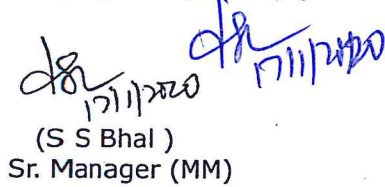 17/11/2020
17/11/2020
(S S Bhal )
Sr. Manager (MM)